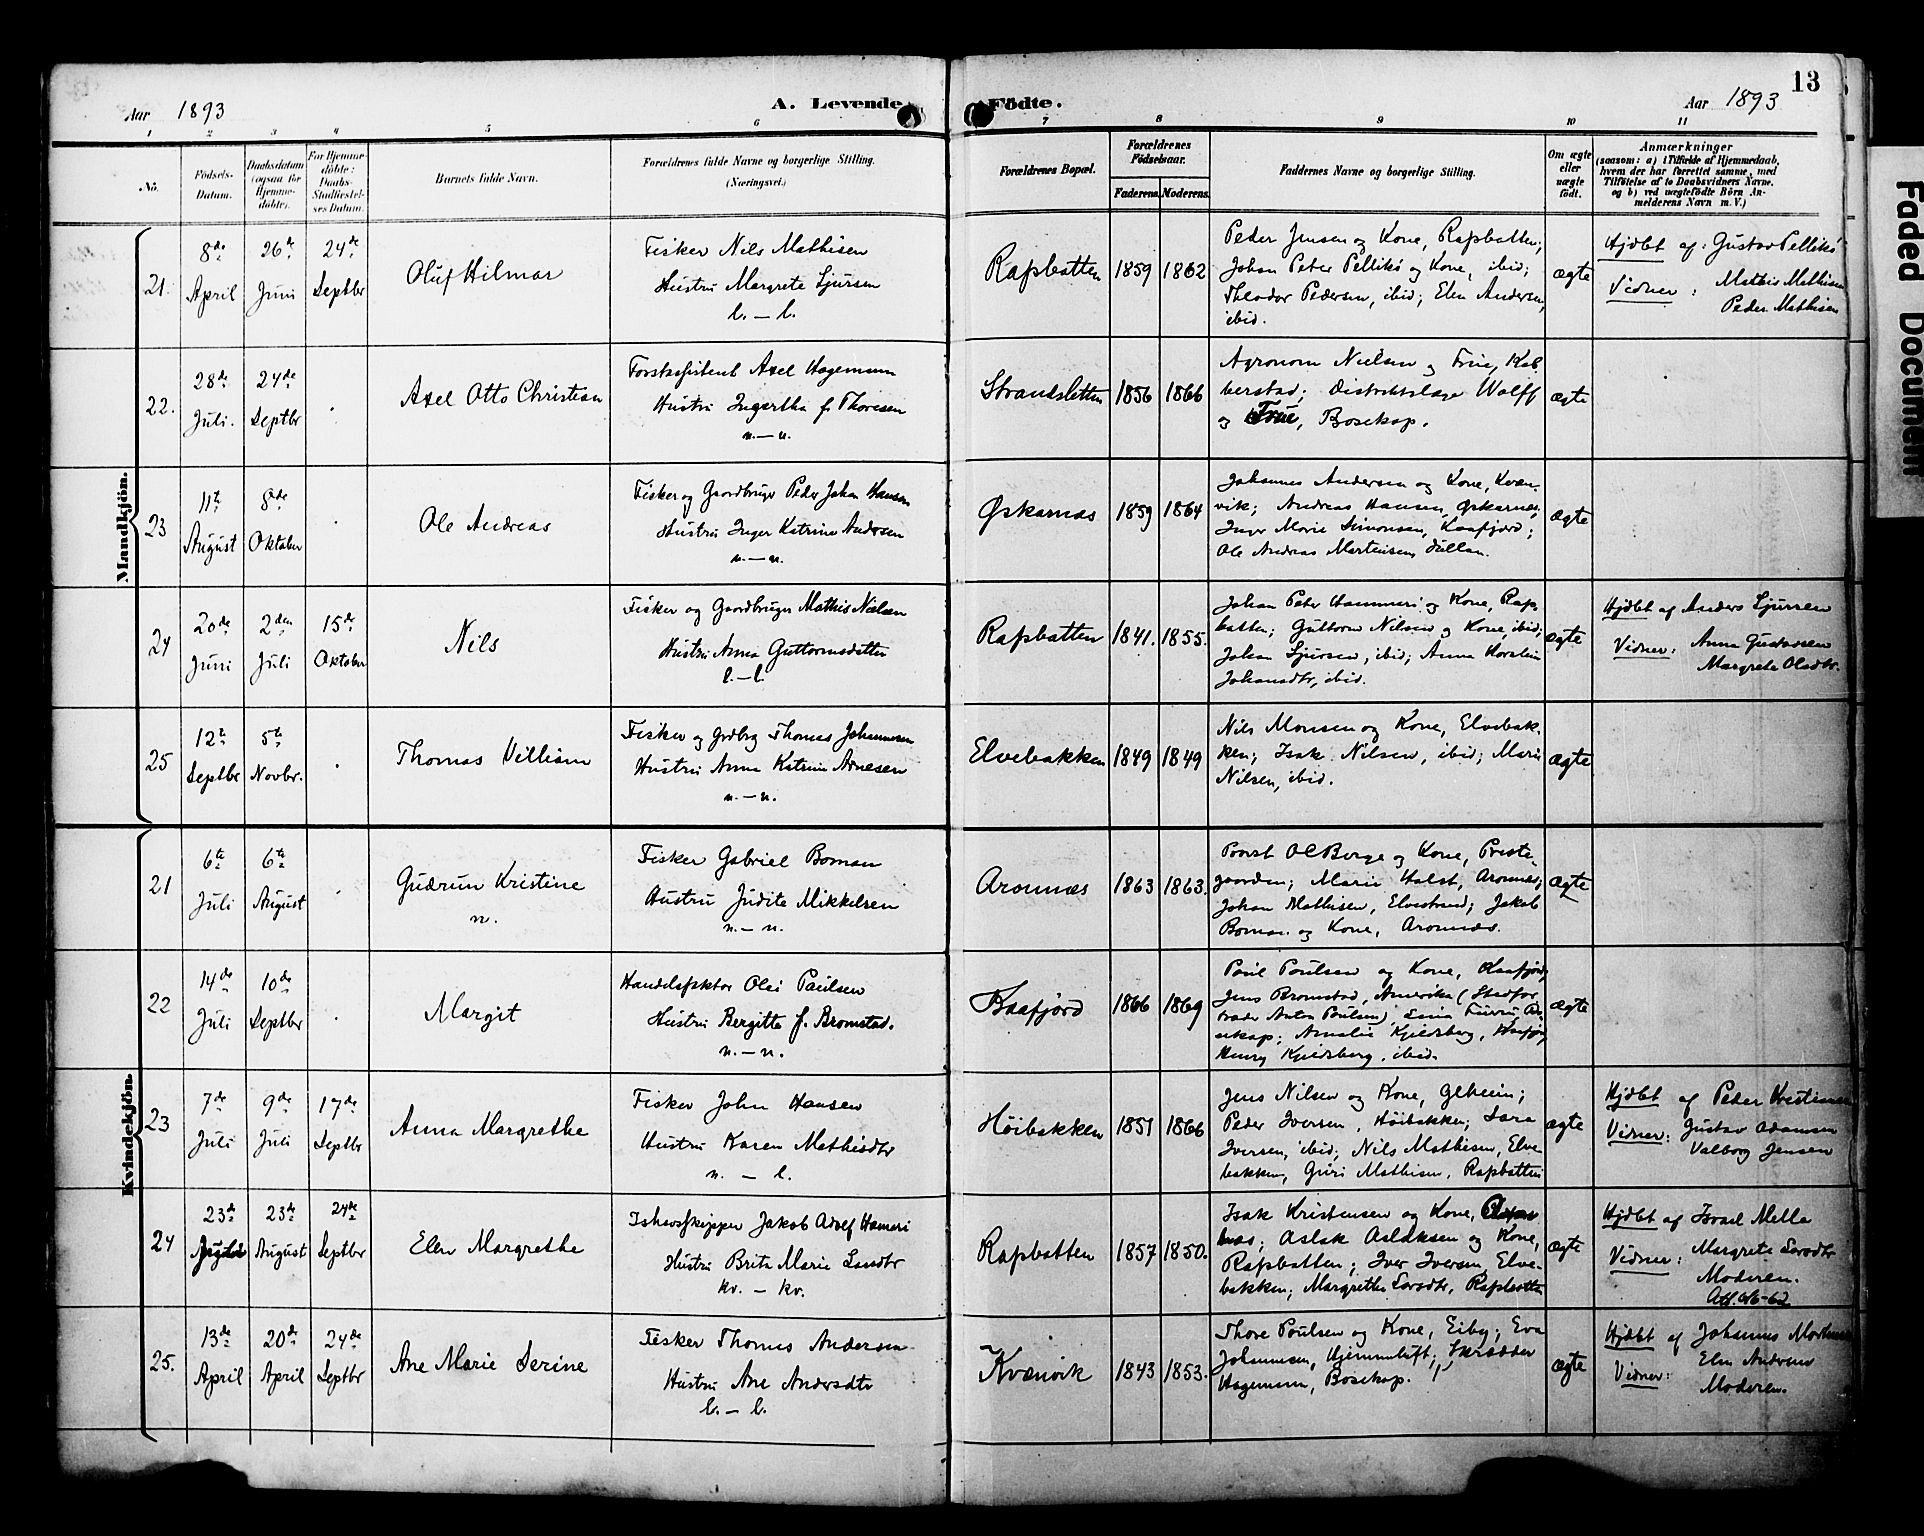 13
Aar 1893
A. Levende
Födte.
Aar 1893
1 2 3 4 5 6 7 8 9 10 11
No.
Födsels-
Datum.
Daabsdatum
(ogsaa for
Hjemme-
döbte).
For Hjemme-
döbte:
Daabs-
Stadfæstel-
ses Datum.
Barnets fulde Navn.
Forældrenes fulde Navne og borgerlige Stilling.
(Næringsvei.)
Forældrenes Bopæl.
Forældrenes
Födselsaar.
Faderens. Moderens.
Faddernes Navne og borgerlige Stilling.
Om ægte
eller
uægte
födt.
Anmærkninger
(saasom: a) i Tilfælde af Hjemmedaab,
hvem der har forrettet samme, med
Tilföielse af to Daabsvidners Navne,
og b) ved uægtefödte Börn An-
melderens Navn m. V.)
Mandkjön.
21.
8de
April
26de
Juni
24de
Septbr
Oluf Hilmar
Fisker Nils Mathisen
Hustru Margrete Ljursen
l. – l.
Rafsbotten
1859 1862
Peder Jensen og Kone, Rafsbotten;
Johan Peter Pellikö og Kone, ibid;
Theodor Pedersen, ibid; Elen Andersen,
ibid.
ægte
Hjdbt af: Gustav Pellikö
Vidner: Mathis Mathisen
Peder Mathisen
22.
28de
Juli.
24de
Septbr
Axel Otto Christian
Forstassistent Axel Hagemann
Hustru Ingertha f. Thoresen
n. – n.
Strandsletten
1856 1866
Agronom Nielsen og Frue, Kol-
berstad; Distriktslæge Wolff
og Frue, Bosekop.
ægte
23
11te
August
8de
Oktober
Ole Andreas
Fisker og Gaardbruger Peder Johan Hansen
Hustru Inger Katrine Andersen
n. – n.
Øskarnæs
1859 1864
Johannes Andersen og Kone, Kvæn-
vik; Andreas Hansen, Øskarnæs;
Inger Marie Simonsen, Kaafjord;
Ole Andreas Martinsen,
ægte
24
20de
Juni
2den
Juli
15de
Oktober
Nils
Fisker og Gaardbruger Mathis Nielsen
Hustru Anna Guttormsdatter
l. – l.
Rafsbotten
1841. 1855.
Johan Peter Hammeri og Kone, Rafs-
botten; Guttorm Nilsen og Kone, ibid;
Johan Ljursen, ibid; Anna
Johansdtr, ibid.
ægte
Hjdbt af Anders Ljursen
Vidner: Anna Gustavsen
Margrete Olsdtr.
25
12te
Septbr
5te
Novbr.
Thomas Villiam
Fisker og Grdbrg Thomas Johannesen
Hustru Anna Katrine Arnesen
n. – n.
Elvebakken
1849 1849
Nils Monsen og Kone, Elvebak-
ken; Isak Nilsen, ibid; Marie
Nilsen, ibid.
ægte
Kvindekjön.
21
6te
Juli
6te
August
Gudrun Kristine
n.
Fisker Gabriel Boman
Hustru Judite Mikkelsen
n. – n.
Aronnæs
1863 1863.
Provst Ol Berge og Kone, Preste-
gaarden; Marie Holst, Aronnæs;
Johan Mathisen, Elvestrand; Jakob
Boman og Kone, Aronnæs.
ægte
22
14de
Juli
10de
Septbr
Margit
Handelsfaktor Olai Paulsen
Hustru Bergitte f. Bromstad.
n. – n.
Kaafjord
1866 1869
Poul Poulsen og Kone, Kaafjord;
Jens Bromstad, Amerika (Stedfor-
træder Anton Poulsen)
Amalie Kjeldsberg, Kaafjord,
Henry Kjeldsberg, ibid.
ægte
23
7de
Juli
9de
Juli
17de
Septbr
Anna Margrethe
Fisker John Hansen
Hustru Karen Mathisdtr
n. – l.
Höibakken
1851 1866
Jens Nilsen og Kone,
Peder Iversen, Höibakken; Sara
Iversen, ibid; Nils Mathisen, Elve-
bakken, Guri Mathisen, Rafsbotten
ægte
Hjdbt af Peder Kristiansen
Vidner: Gustav Adamsen
Valborg Jensen
24
23de
23de
August
24de
Septbr
Elen Margrethe
Ishavsskipper Jakob Adolf Hameri
Hustru Brita Marie Larsdtr
kv. – kv.
Rafsbotten
1857 1850.
Isak Kristensen og Kone,
næs; Aslak Aslaksen og Kone,
Rafsbotten; Iver Iversen, Elve-
bakken; Margrethe Larsdtr, Rafsbotten
ægte
Hjdbt af Israel Mella
Vidner: Margrete Larsdtr
Moderen.
25.
13de
April
20de
April
24de
Septbr
Ane Marie Serine
Fisker Thomas Andersen
Hustru Ane Andersdtr
l. – l.
Kvænvik
1843 1853.
Thore Poulsen og Kone, Eiby; Eva
Johannesen, Hjemmeluft; Skrædder
Hagemann, Bosekop.
ægte
Hjdbt af Johannes
Vidner: Elen Andersen
Moderen.
Faded Document